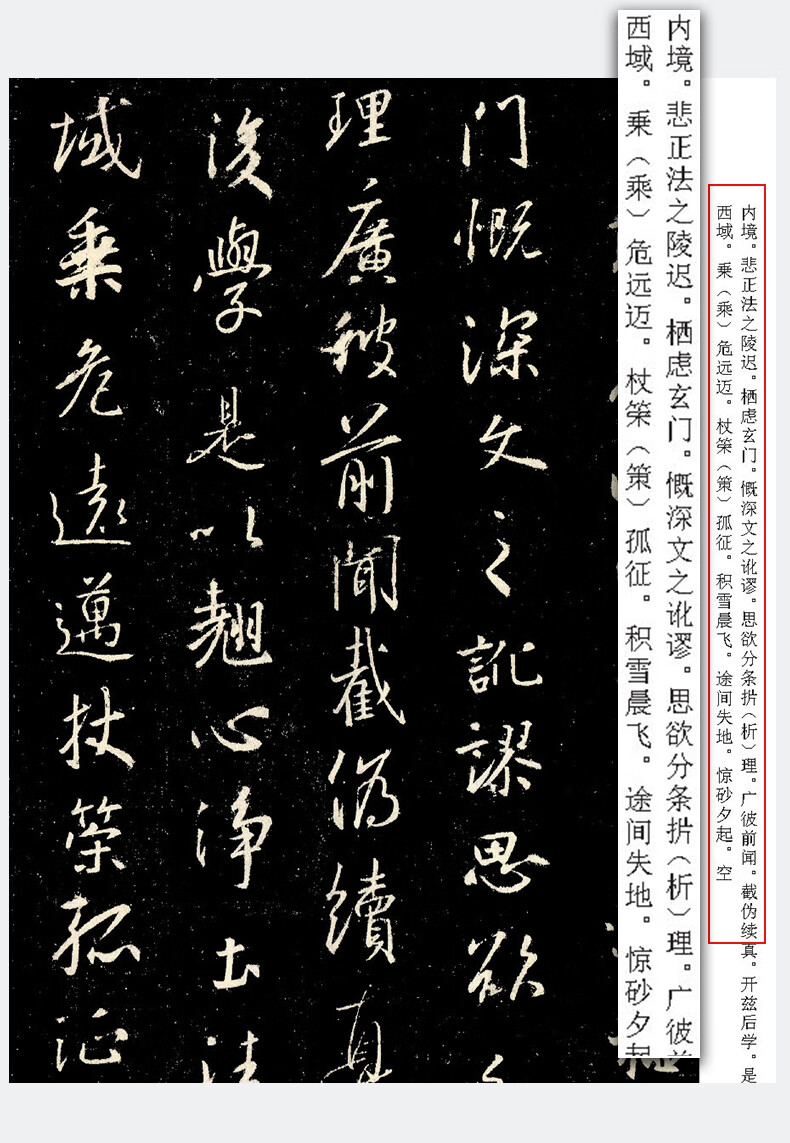 内境。悲正法之陵迟。栖虑玄门。慨深文之讹谬。思欲分条扸（析）理。广彼前闻。截伪续真。开兹后学。是
西域。乗（乘）危远迈。杖筞（策）孤征。积雪晨飞。途间失地。惊砂夕起。空
内境。悲正法之陵迟。栖虑玄门。慨深文之讹谬。思欲分条扸（析）理。广彼前
西域。乗（乘）危远迈。杖筞（策）孤征。积雪晨飞。途间失地。惊砂夕起
门慨深文之訛謬思欲
理廣彼前聞截偽續真
後學是以翹心淨土法
域乗危遠邁杖筞孤征